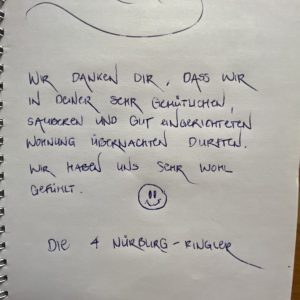 WIR DANKEN DIR, DASS WIR
IN DEINER SEHR GEMÜTLICHEN,
SAUBEREN UND GUT EINGERICHTETEN
WOHNUNG ÜBERNACHTEN DURFTEN.
WIR HABEN UNS SEHR WOHL
GEFÜHLT.
DIE 4 NÜRBURG-RINGLER